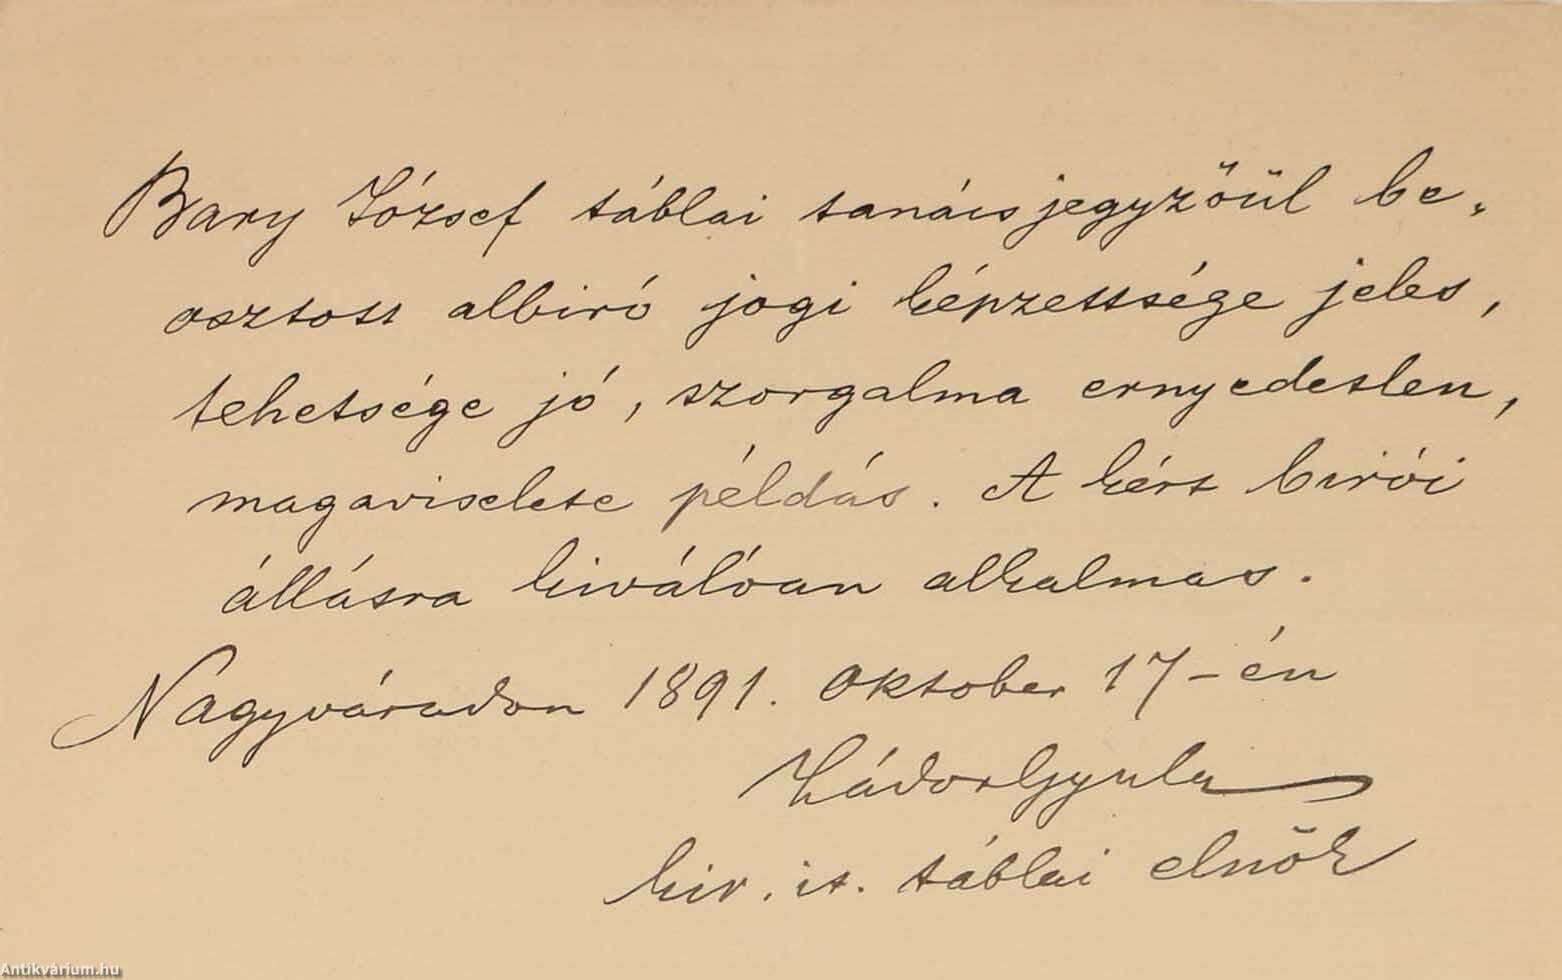 Bary József táblai tanácsjegyzőül be-
osztott albiró jogi képzettsége jeles,
tehetsége jó, szorgalma ernyedetlen,
magaviselete példás. A kért birói
állásra kiválóan alkalmas.
Nagyváradon 1891. Oktober 17-én
Zádor Gyula
kir. it. táblai elnök
Antikvárium.hu